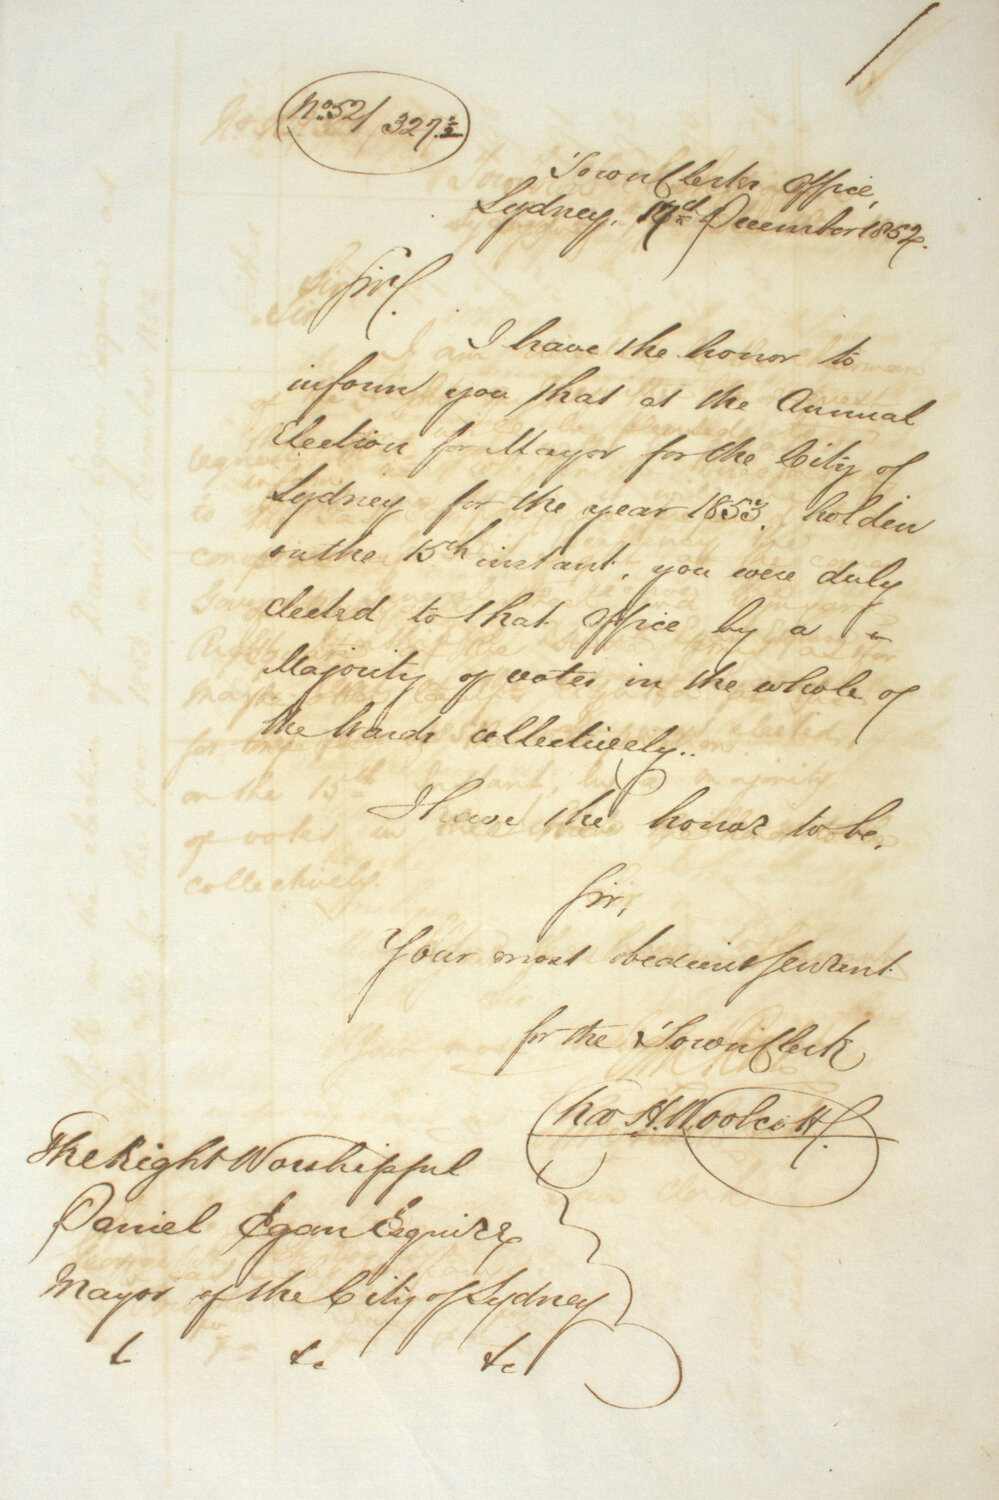 No. 52/ 327½
Town Clerks Office,
Sydney, 17th December 1852.
Sir,
I have the honor to
inform you that at the Annual
Election for Mayor for the City of
Sydney for the year 1853, holden
on the 15th instant, you were duly
elected to that Office by a
Majority of votes in the whole of
the Wards collectively.
I have the honor to be,
Sir,
Your most obedient servant
for the Town Clerk
H. Woolcott
The Right Worshipful
Daniel Egan Esquire
Mayor of the City of Sydney
&c &c &c